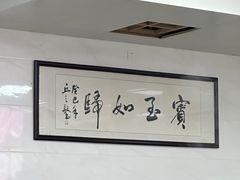 賓至如歸
癸巳年